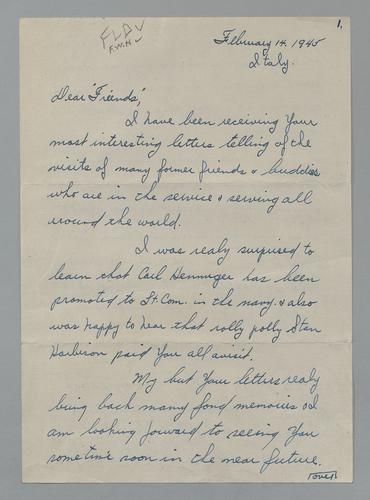 1.
FLDV
F.W.N
February 14, 1945
Italy.
Dear "Friends",
I have been receiving your
most interesting letters telling of the
visits of many former friends & buddies
who are in the service & serving all
around the world.
I was realy surprised to
learn that Carl Henninger has been
promoted to Lt. Com. in the navy. & also
was happy to hear that rolly polly Stan
Harbison paid you all a visit.
My but your letters realy
bring back many fond memories & I
am looking forward to seeing you
sometime soon in the near future.
over